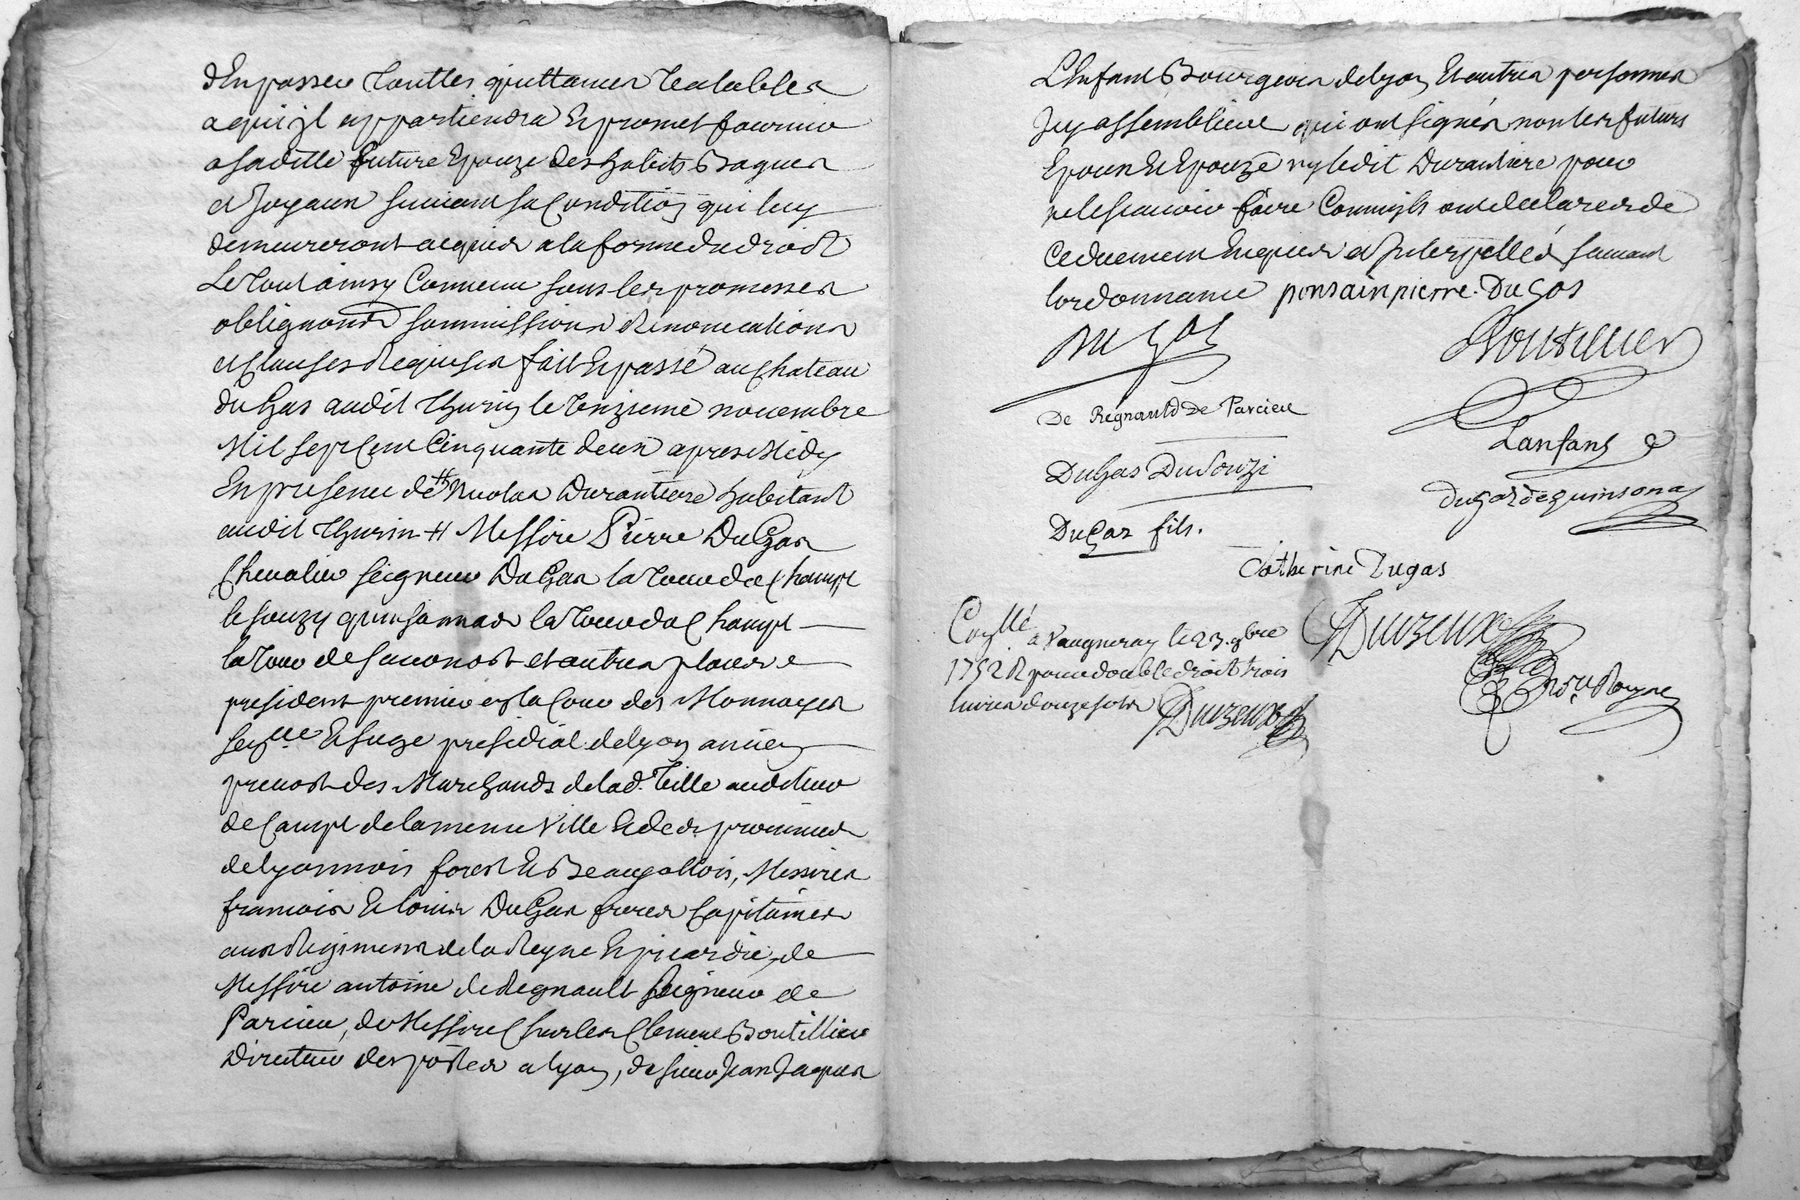 d'En passer touttes quittances valables
a qui il appartiendra Et promet fournir
a sa ditte future Epouze des habits Bagues
et Joyaux suivant sa Condition qui luy
demeureront acquis a la forme du droit
Le tout ainsy Convenu sous les promesses
obligations soummissions Renonciations
et clauses Requises fait Et passé au Chateau
du Gas audit Thurin le onzieme novembre
Mil sept Cent Cinquante deux apres Midy
En presence de Nicolas Durantiere habitant
audit Thurin + Messire Pierre DuGas
Chevalier Seigneur DuGas la Tour de Champt
le souzy quinsonnas la Tour de Champt
la Tour de Saconost et autres places
president premier en la Cour des Monnoyes
Senlle Et siege presidial de Lyon ancien
prevost des Marchands de lad. Ville auditeur
de Campt de la meme Ville Et des provinces
de Lyonnois forest Et Beaujollois, Messires
francois Et louis DuGas freres Capitaines
aux Regimens de la Reyne Et picardie, de
Messire antoine de Regnault Seigneur de
Parcieu, de Messire Charles Clement Boutillier
Directeur des postes a Lyon, de sieur Jean Jaques
L'Enfant Bourgeois de Lyon Et autres personnes
Icy assemblées qui ont signés non les futurs
Epoux Et Epouze ny ledit Durantiere pour
ne le scavoir faire Comme ils ont declarer de
ce duement Enquis et Interpellés suivant
l'ordonnance ponsainpierre. DuGas
DuGas
Boutillier
De Regnauld De Parcieu
Lanfant
DuGas DuSouzi
dugas de quinsonas
DuGas fils.
Catherine Dugas
Con.llé
a Vaugneray le 23. 9bre
1752 R pour double droit trois
livres douze sols